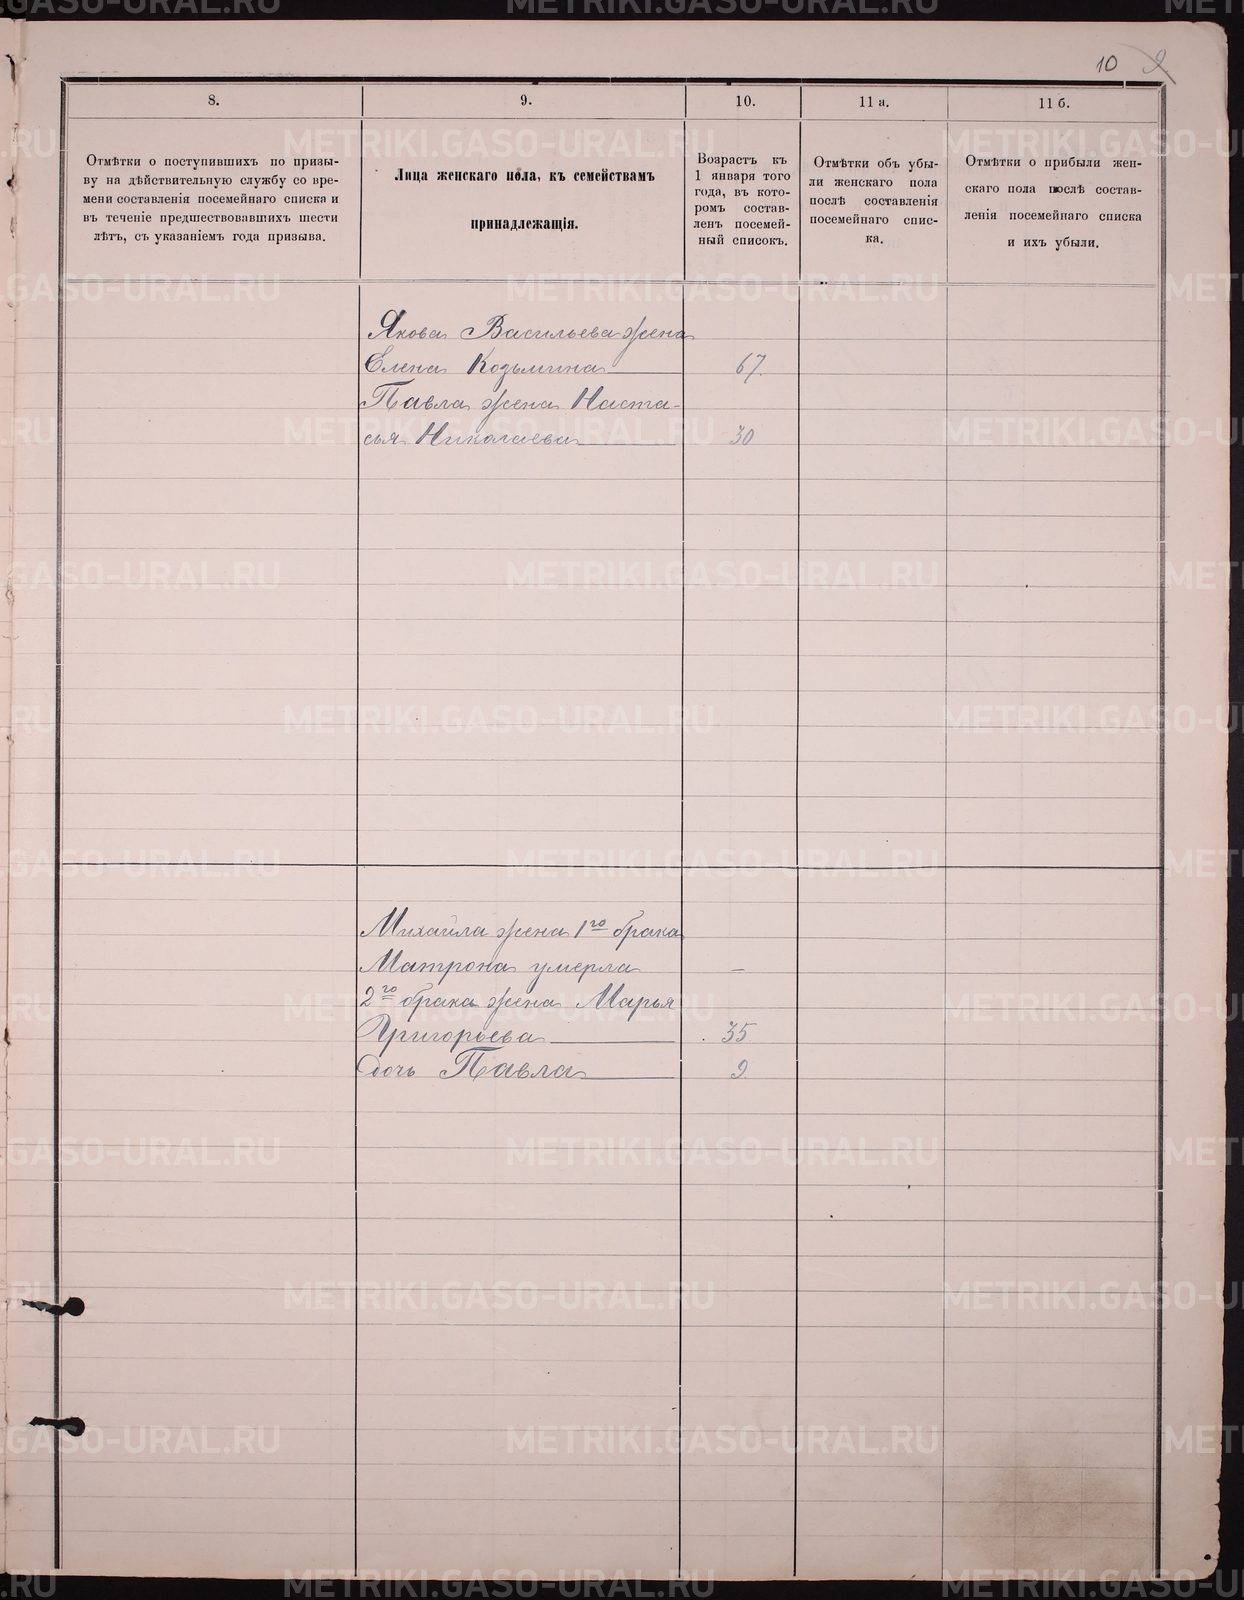 10
8.
9.
10.
11 а.
11 б.
Отмѣтки о поступившихъ по призы-
ву на дѣйствительную службу со вре-
мени составленія посемейнаго списка и
въ теченіе предшествовавшихъ шести
лѣтъ, съ указаніемъ года призыва.
Лица женскаго пола, къ семействамъ
принадлежащія.
Возрастъ къ
1 января того
года, въ кото-
ромъ состав-
ленъ посемей-
ный списокъ.
Отмѣтки объ убы-
ли женскаго пола
послѣ составленія
посемейнаго спис-
ка.
Отмѣтки о прибыли жен-
скаго пола послѣ состав-
ленія посемейнаго списка
и ихъ убыли.
Якова Васильева жена
Елена Козьмина 67.
Павла жена Наста-
сья Николаева 30
Михайла жена 1го брака
Матрона умерла –
2го брака жена Марья
Григорьева 35
дочь Павла 9.
METRIKI.GASO-URAL.RU